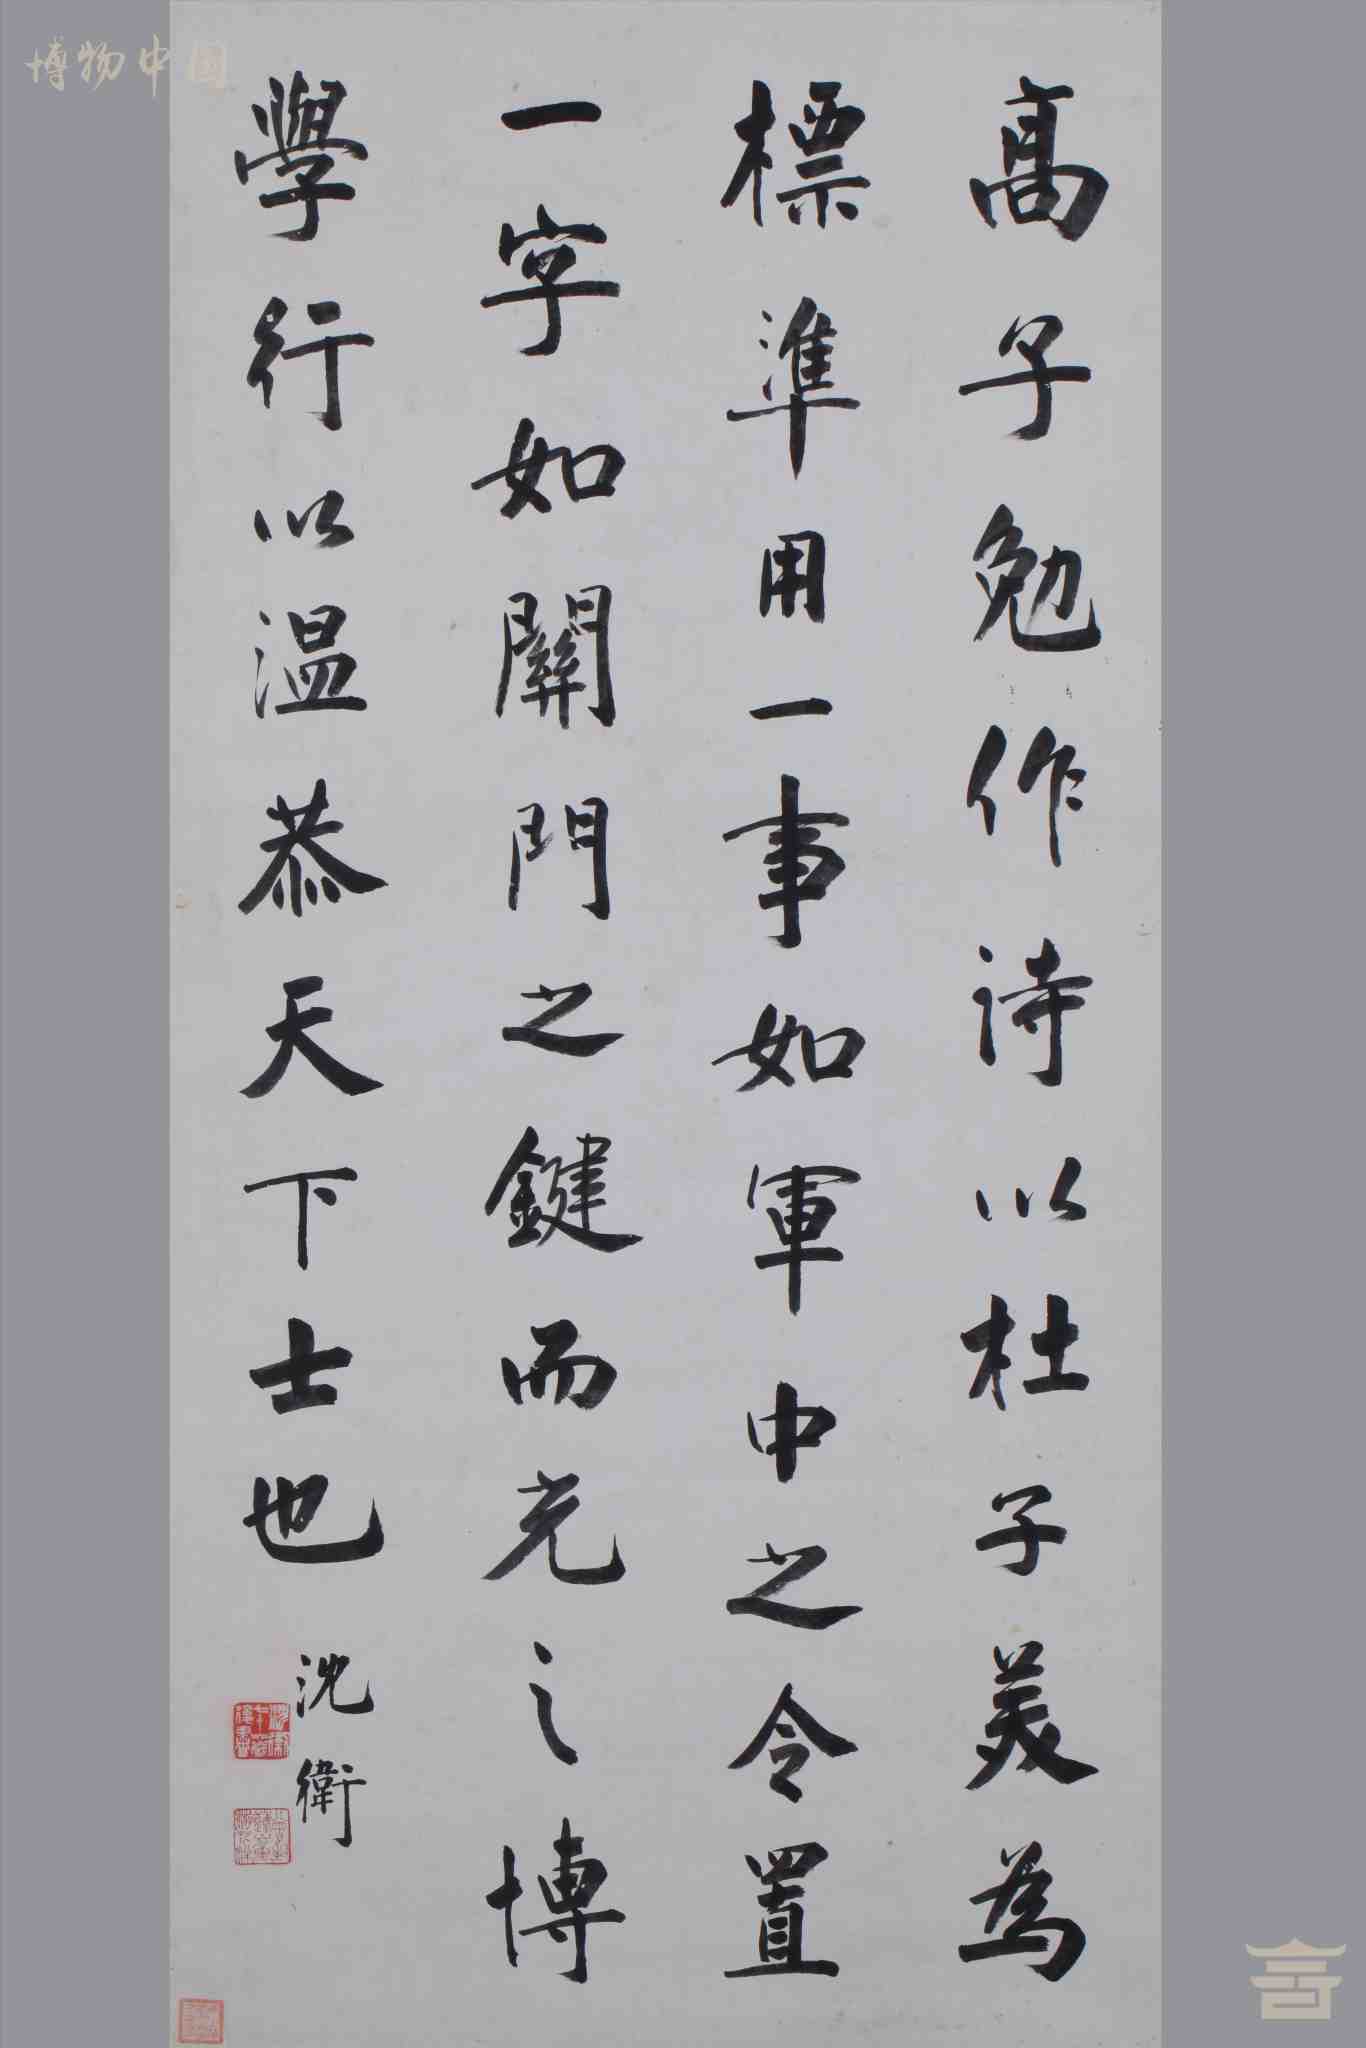 高子勉作詩以杜子美為
標準用一事如軍中之令置
一字如關門之鍵而充之博
學行以温恭天下士也
沈衛
博物中国